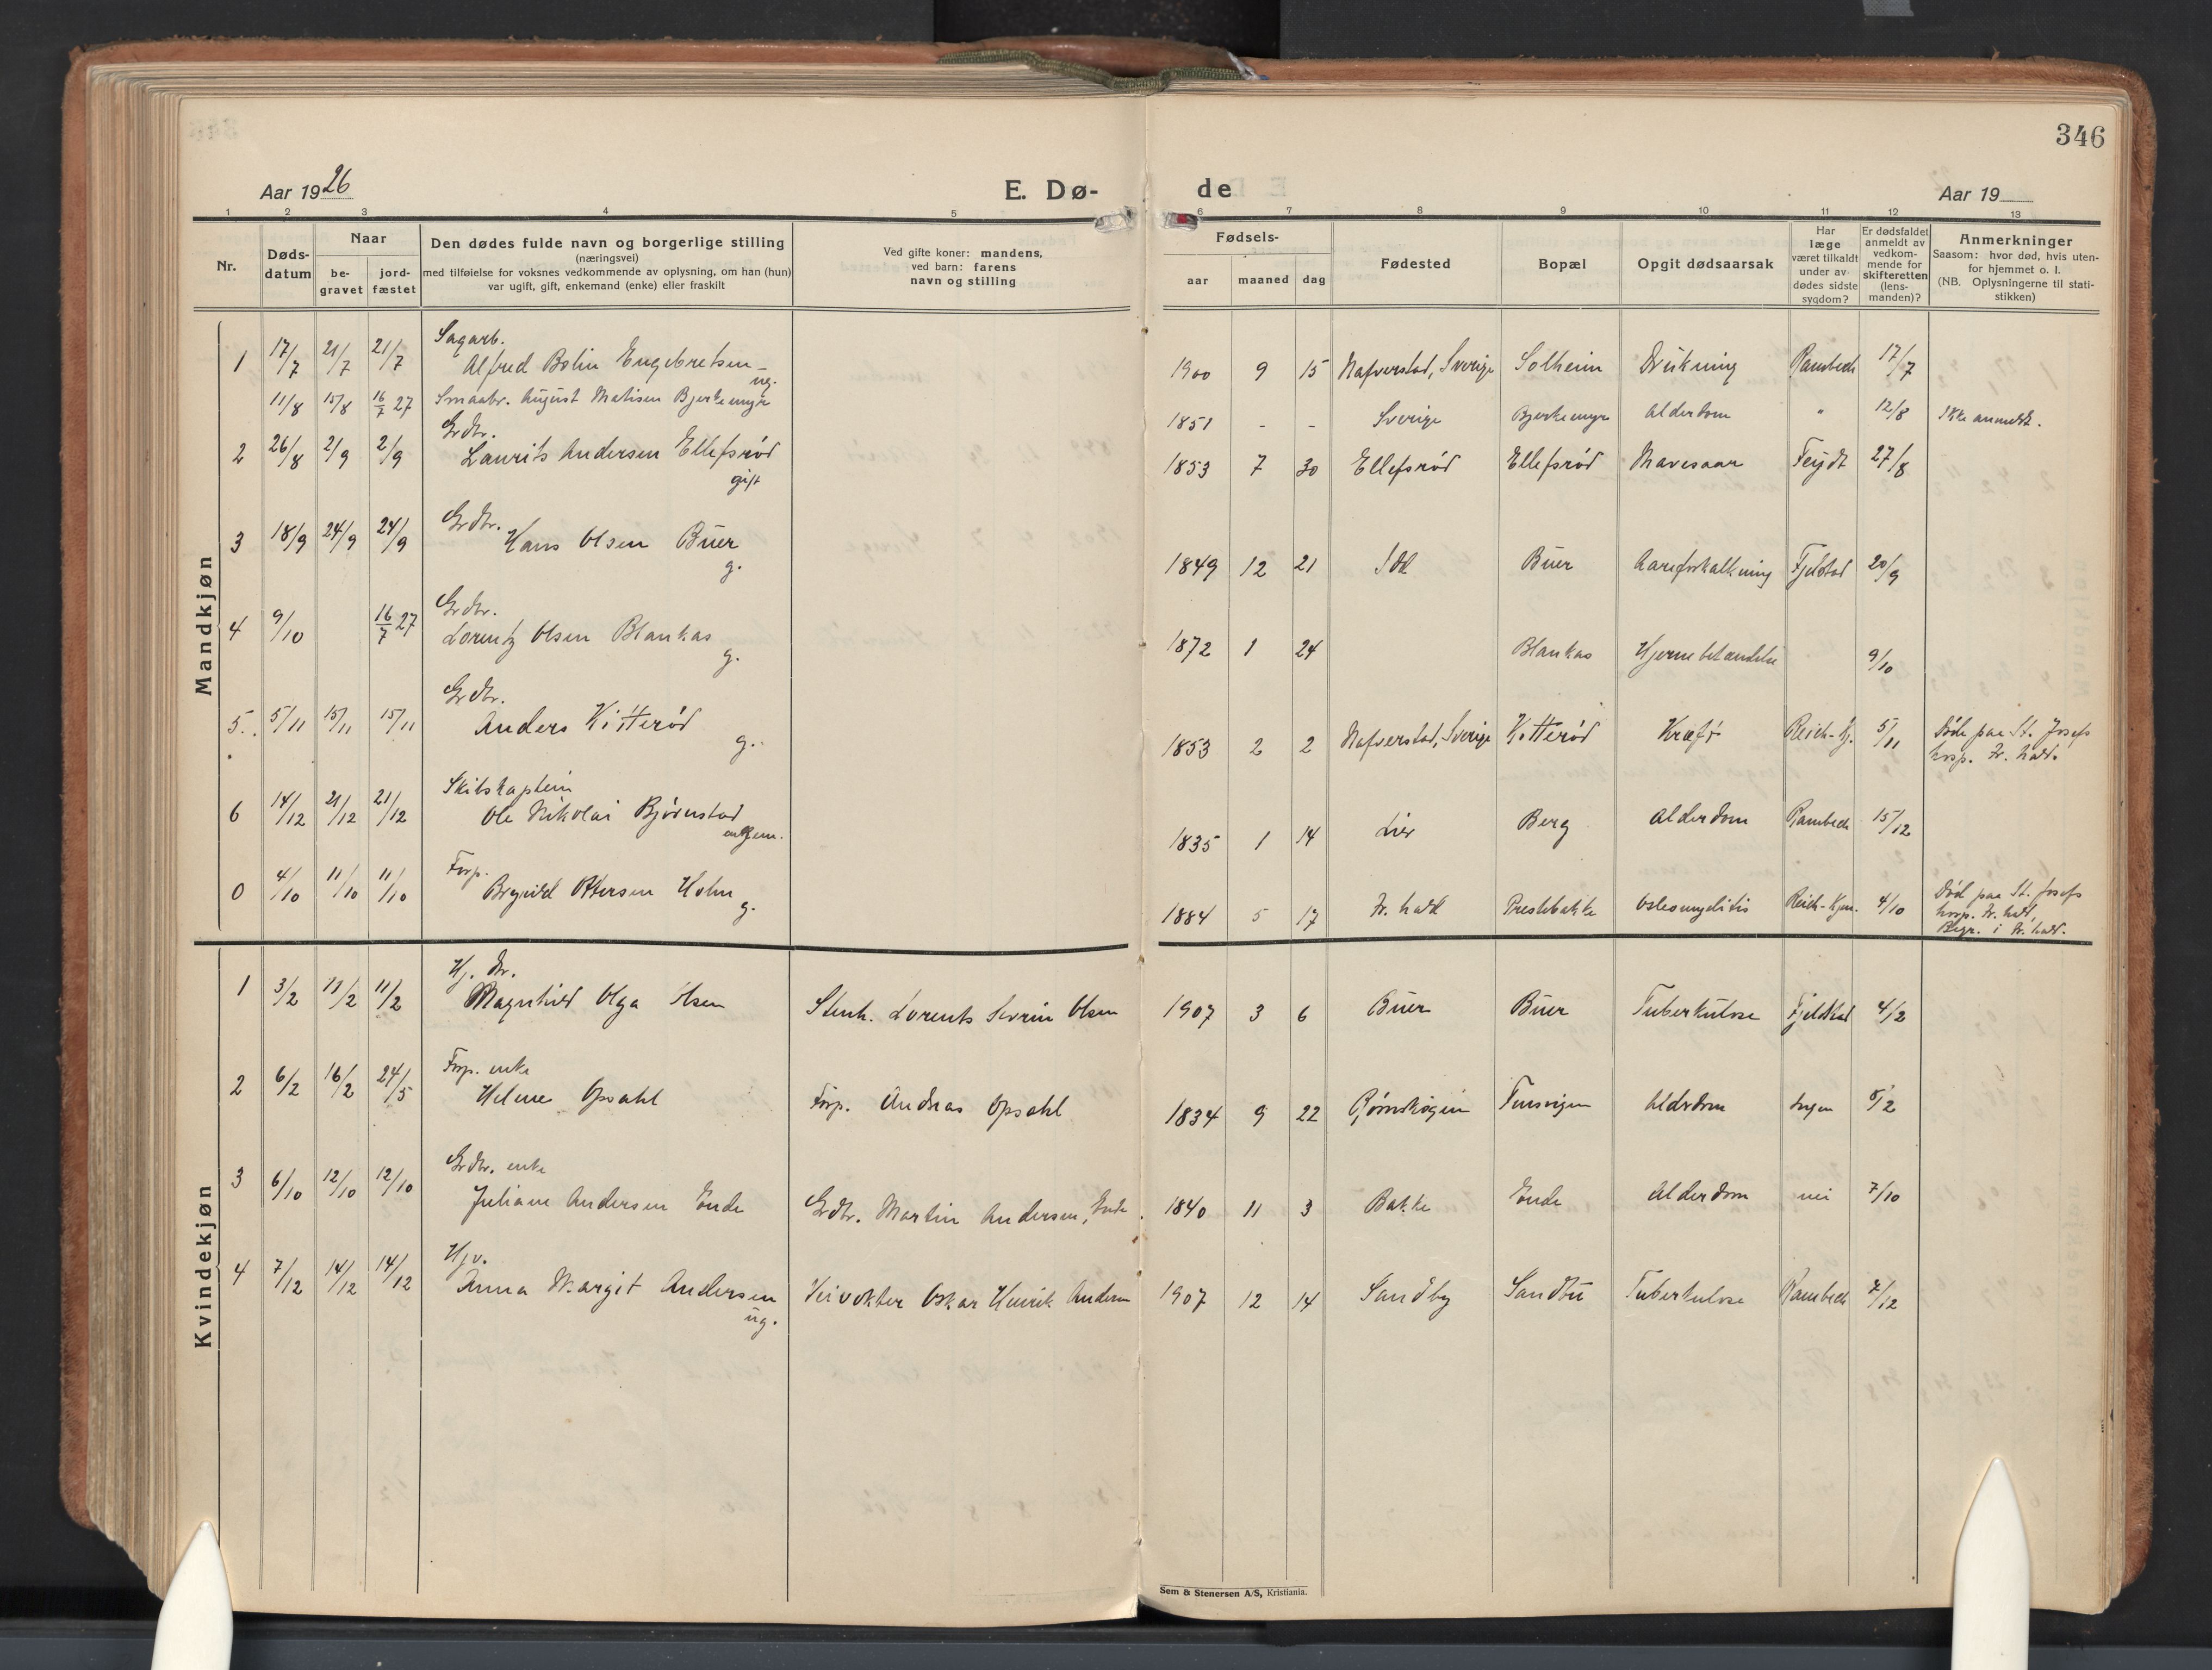 346
Aar 1926
E. Dø-
de
Aar 19
1 2 3 4 5 6 7 8 9 10 11 12 13
Nr.
Døds-
datum
Naar
be-
gravet
jord-
fæstet
Den dødes fulde navn og borgerlige stilling
(næringsvei)
med tilføielse for voksnes vedkommende av oplysning, om han (hun)
var ugift, gift, enkemand (enke) eller fraskilt
Ved gifte koner: mandens,
ved barn: farens
navn og stilling
Fødsels-
aar maaned dag
Fødested
Bopæl
Opgit dødsaarsak
Har
læge
været tilkaldt
under av-
dødes sidste
sygdom?
Er dødsfaldet
anmeldt av
vedkom-
mende for
skifteretten
(lens-
manden)?
Anmerkninger
Saasom: hvor død, hvis uten-
for hjemmet o. l.
(NB. Oplysningerne til stati-
stikken)
Mandkjøn
Sagarb.
1 17/7 21/7 21/7 Alfred Bolin Engebretsen 1900 9 15 Nafverstad, Sverige Solheim Drukning Rambech 17/7
ug.
11/8 15/8 16/7 27 Smaabr. August Matisen Bjerkemyr 1851 - - Sverige Bjerkemyr Alderdom " 12/8 Ikke anmeldt.
Grdbr.
2 26/8 2/9 2/9 Laurits Andersen Ellefsrød 1853 7 30 Ellefsrød Ellefsrød Mavesaar Feydt 27/8
gift
Grdbr.
3 18/9 24/9 24/9 Hans Olsen Buer 1849 12 21 Idd Buer Aareforkalkning Fjeldstad 20/9
g.
Grdbr.
4 9/10 16/7 27 Lorentz Olsen Blankas 1872 1 24 Blankas Hjernebetændelse 9/10
g.
Grdbr.
5. 5/11 15/11 15/11 Anders Kitterød 1853 2 2 Nafverstad, Sverige Kitterød Kræft Reich-Kj. 5/11 Døde paa St. Josefs
g. hosp. Fr. hald.
Skibskaptein
6 14/12 21/12 21/12 Ole Nikolai Bjørnstad 1835 1 14 Lier Berg Alderdom Rambech 15/12
Forp.
0 4/10 11/10 11/10 Brynild Ottersen Holm 1884 5 17 Fr. hald Prestebakke Osteomyelitis Reich-Kjen. 4/10 Død paa St. Josefs
g. hosp. Fr. hald,
Begr. i Fr. hald.
Kvindekjøn
Hj. dtr.
1 3/2 11/2 11/2 Magnhild Olga Olsen Stenh. Lorents Severin Olsen 1907 3 6 Buer Buer Tuberkulose Fjeldstad 4/2
Forp. enke
2 6/2 16/2 24/5 Helene Opsahl Forp. Andreas Opsahl 1834 9 22 Rømskogen Alderdom Ingen 8/2
Grdbr. enke
3 6/10 12/10 12/10 Juliane Andersen Ende Grdbr. Martin Andersen, Ende 1840 11 3 Bakke Ende Alderdom nei 7/10
Hjv.
4 7/12 14/12 14/12 Anna Margit Andersen Veivokter Oskar Henrik Andersen 1907 12 14 Sandby Sandbu Tuberkulose Rambech 7/12
ug.
Sem & Stenersen A/S, Kristiania.